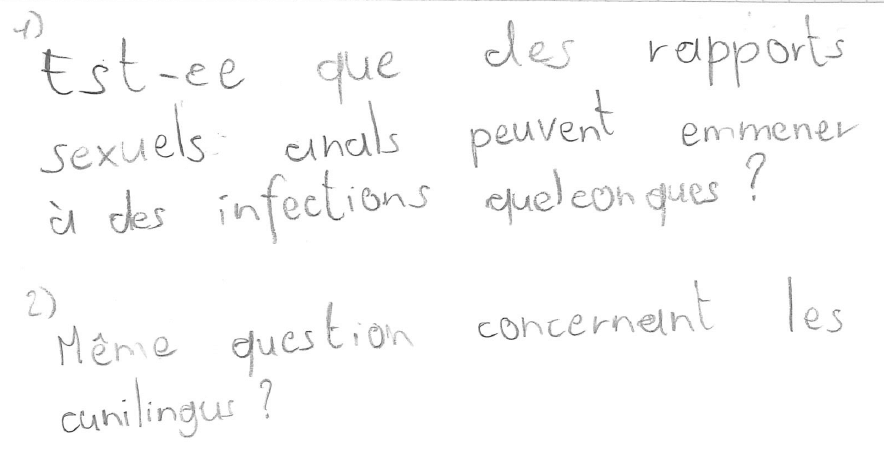 1)
Est-ce que des rapports
sexuels anals peuvent emmener
à des infections quelconques ?
2)
Même question concernant les
cunilingus ?